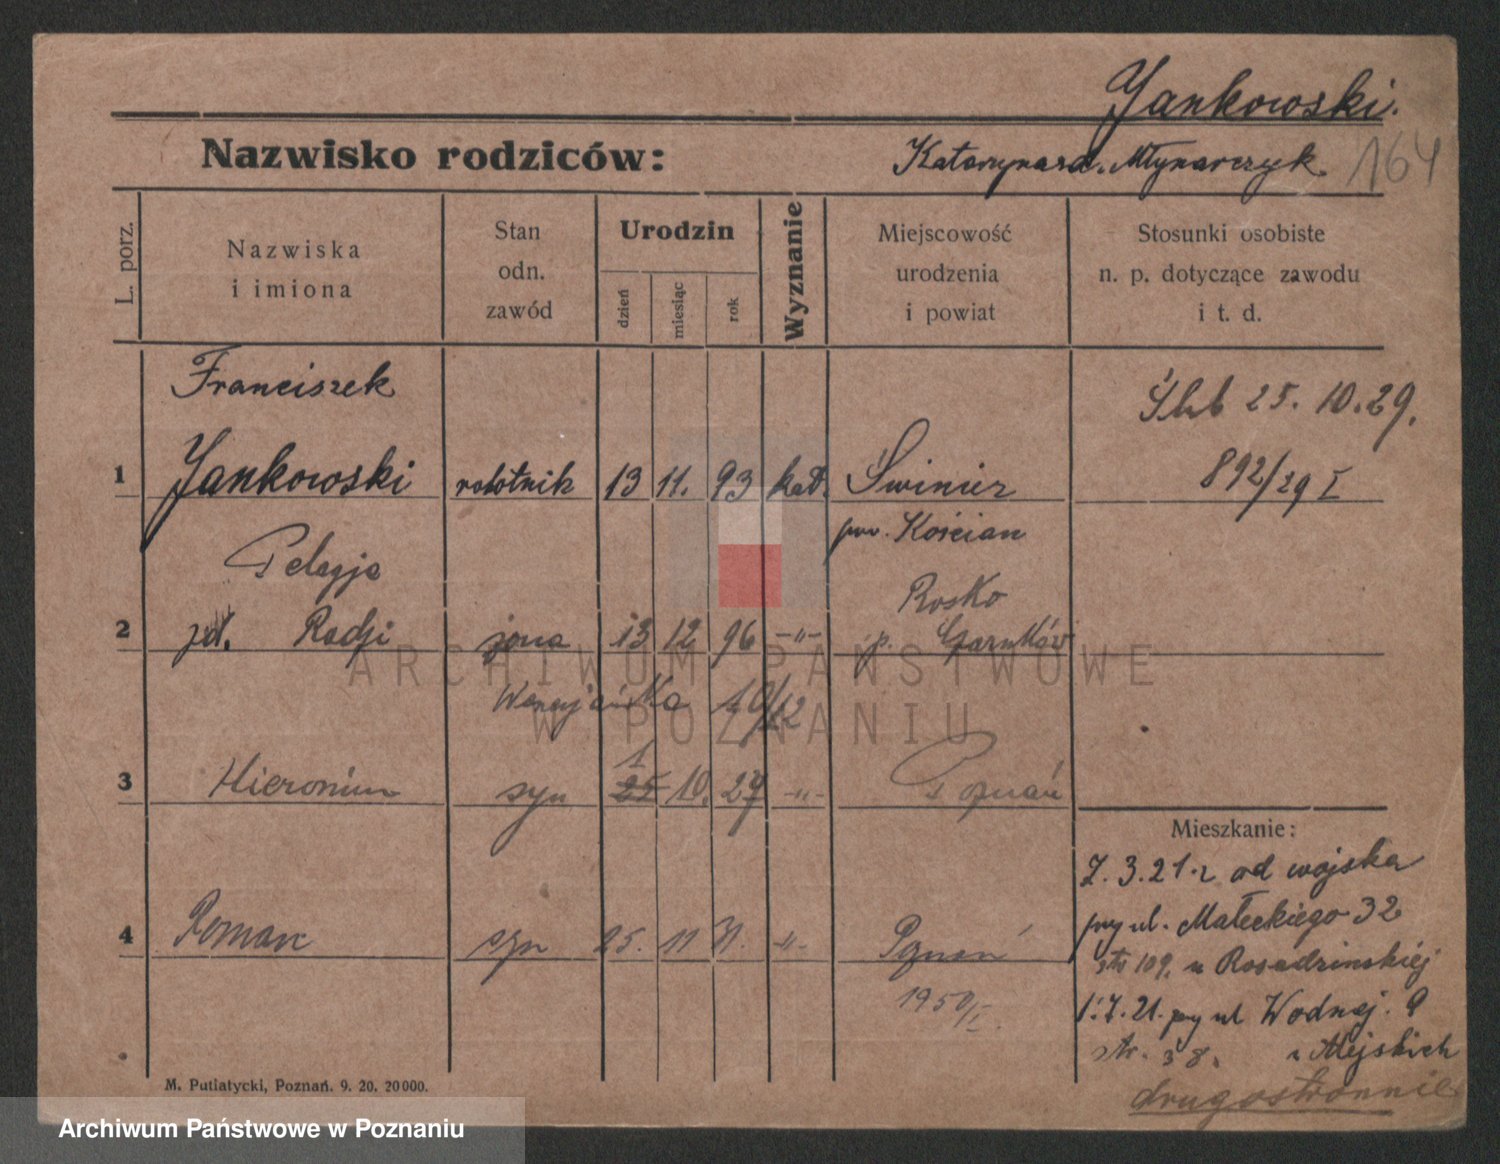 Jankowski.
Nazwisko rodziców: Katarzyna zd. Młynarczyk. 164
L. porz.
Nazwiska i imiona
Stan odn. zawód
Urodzin
dzień
miesiąc
rok
Wyznanie
Miejscowość urodzenia i powiat
Stosunki osobiste n. p. dotyczące zawodu i t. d.
Franciszek
Ślub 25. 10. 29.
1 Jankowski robotnik 13 11. 93 kat. Świniec
892/29 I
pow. Kościan
Pelagja
Rosko
2 zd. Radji żona 13 12 96 -"- p. Czarnków
ARCHIWUM PAŃSTWOWE
W POZNANIU
10/12
1
3 Hieronim syn 25 10. 29 -"- Poznań
Mieszkanie:
7. 3. 21. z od wojska
przy ul. Małeckiego 32
4 Roman syn 25. 11 31. -"- Poznań
str 109. u Rosadzinskiej
1950/I.
1. 7. 21. przy ul Wodnej. 9
str. 38. u Miejskich
drugostronnie
M. Putiatycki, Poznań. 9. 20. 20000.
Archiwum Państwowe w Poznaniu